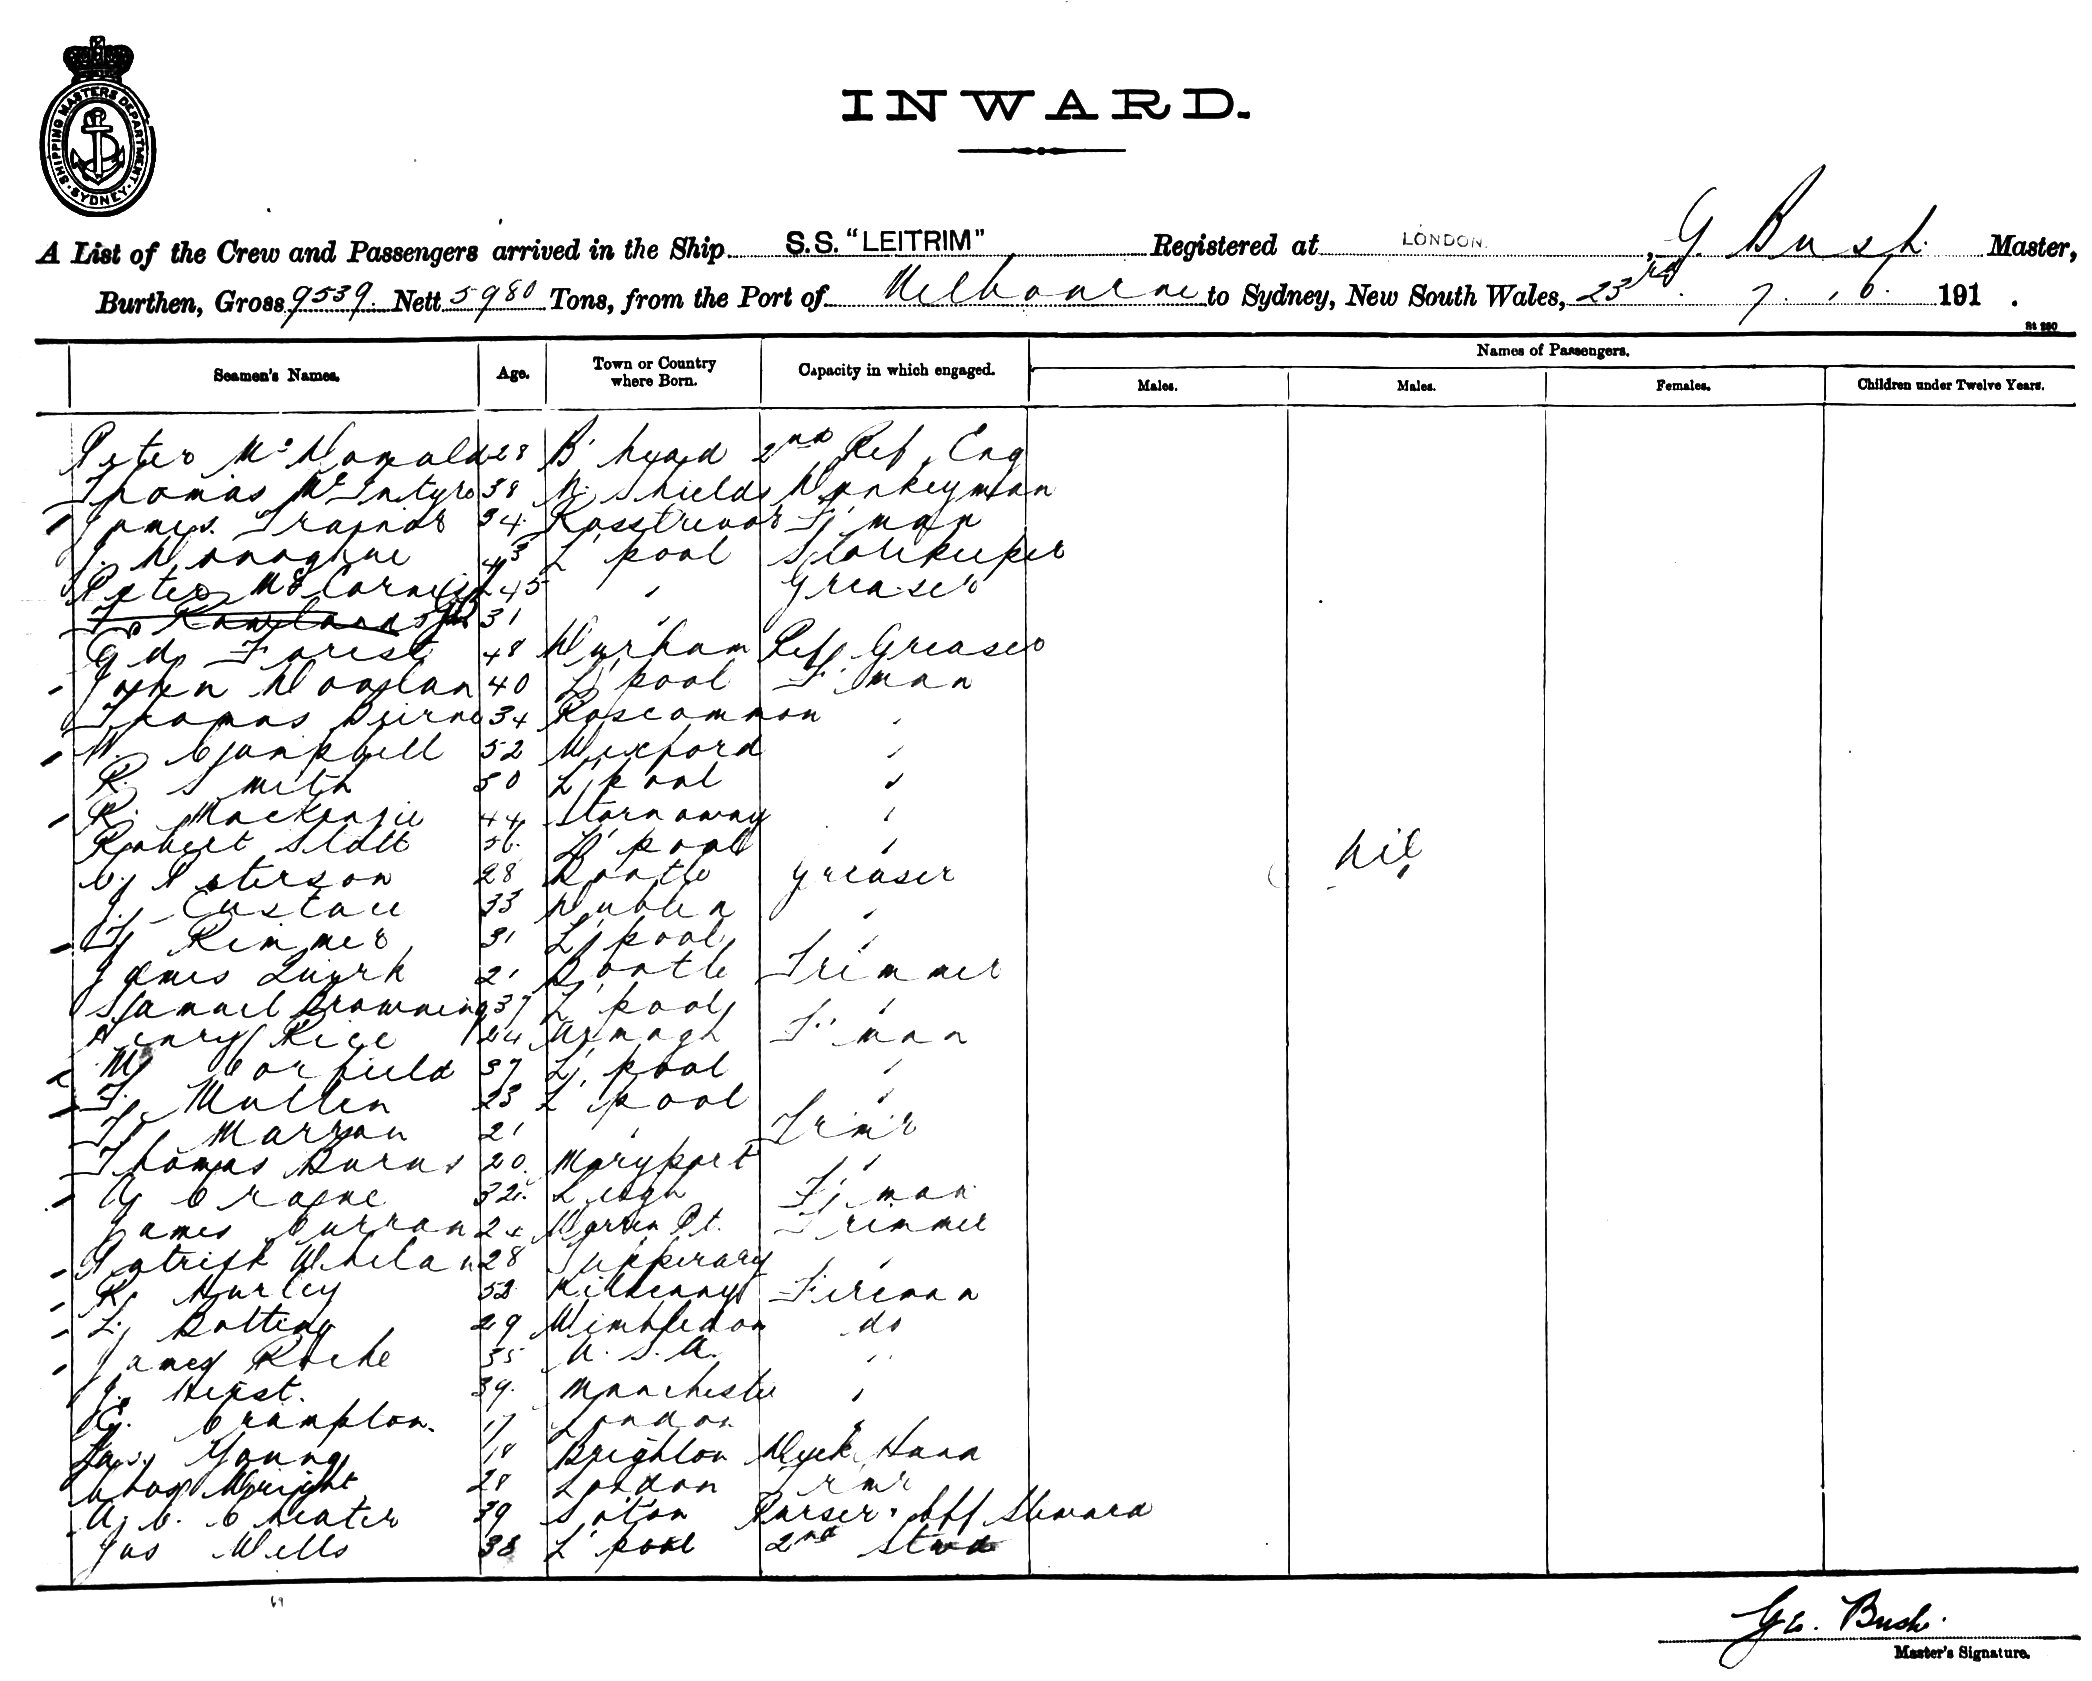 SHIPPING MASTERS DEPARTMENT · SYDNEY ·
INWARD.
A List of the Crew and Passengers arrived in the Ship S.S. "LEITRIM" Registered at LONDON, G. Bush. Master,
Burthen, Gross 9539. Nett 5980 Tons, from the Port of Melbourne to Sydney, New South Wales, 23rd. 7. 16. 191 .
St 290
Names of Passengers.
Seamen's Names. Age. Town or Country where Born. Capacity in which engaged. Males. Males. Females. Children under Twelve Years.
Peter McDonald 28 B'head 2nd Ref. Eng
Thomas McIntyre 38 N. Shields Donkeyman
James Trainor 34 Rosstrevor F'man
J. Donaghue 43 L'pool Storekeeper
Peter 45 " Greaser
T. Rowlands 31 "
Ed. Forest 48 Durham Ref Greaser
John 40 L'pool F'man
Thomas Beirne 34 Roscommon "
W. Campbell 52 Wexford "
R. Smith 50 L'pool "
R. Mackenzie 44 Stornaway "
Robert Slott 36 L'pool "
C. Peterson 28 Bootle Greaser
J. Eustace 33 Dublin "
T. Rimmer 31 L'pool "
James Quirk 21 Bootle Trimmer
Samuel Browning 37 L'pool "
Henry Rice 24 Armagh F'man
M. Corfield 37 L'pool "
F. Mullen 23 L'pool "
T. Marron 21 " Trim'r
Thomas Burns 20. Maryport "
32. Leigh F'man
James Curran 24 Warren Pt. Trimmer
Patrick Whelan 28 Tipperary "
R. Hurley 52 Kilkenny Fireman
L. Botting 29 Wimbledon do
James Roche 35 U.S.A. "
J. Hirst. 39. Manchester "
G. Crampton. 17 London
Jas. Young 18 Brighton Deck Hand
Chas Wright 28 London Trimr
A. C. Cheater 39 S'ton Purser & Chf Steward
Jas Wells 38 L'pool 2nd Stwd
Nil
Geo. Bush.
Master's Signature.